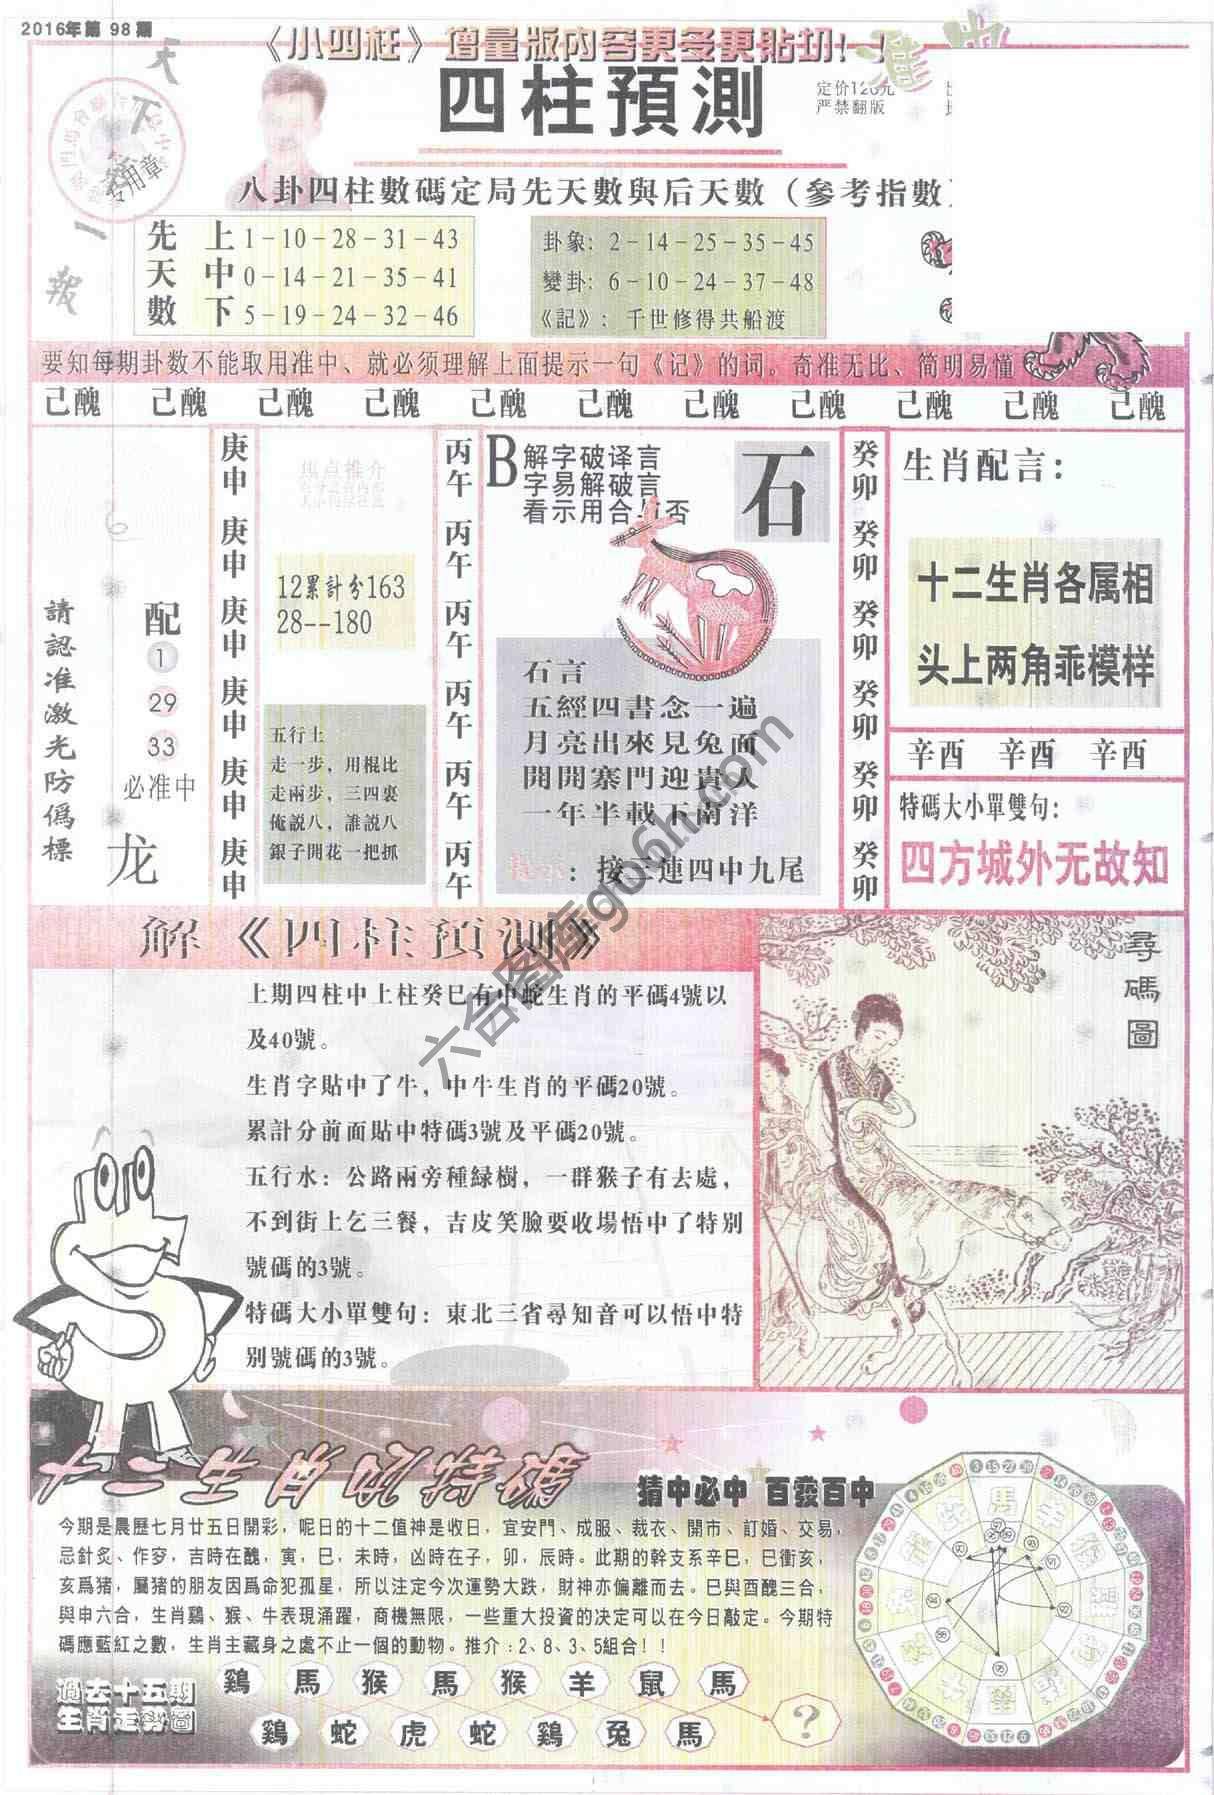 2016年第 98 期
《小四柱》增量版内容更多更贴切！！
准
天下一報
专用章
四柱預測
定价120元
严禁翻版
八卦四柱數碼定局先天數與后天數（參考指數）
先天數
上 1－10－28－31－43
中 0－14－21－35－41
下 5－19－24－32－46
卦象: 2－14－25－35－45
變卦: 6－10－24－37－48
《記》: 千世修得共船渡
要知每期卦数不能取用准中、就必须理解上面提示一句《记》的词。奇准无比、简明易懂
己醜 己醜 己醜 己醜 己醜 己醜 己醜 己醜 己醜 己醜 己醜
請認准激光防僞標
配
1
29
33
必准中
龙
庚申 庚申 庚申 庚申 庚申 庚申
焦点推介
12累計分163
28--180
五行土
走一步，用棍比
走兩步，三四裏
俺説八，誰説八
銀子開花一把抓
丙午 丙午 丙午 丙午 丙午 丙午
B
解字破译言
字易解破言
看示用合与否
石
石言
五經四書念一遍
月亮出來見兔面
開開寨門迎貴人
一年半載下南洋
提示: 接三連四中九尾
癸卯 癸卯 癸卯 癸卯 癸卯 癸卯
生肖配言:
十二生肖各属相
头上两角乖模样
辛酉 辛酉 辛酉
特碼大小單雙句:
四方城外无故知
解《四柱預測》
上期四柱中上柱癸巳有中蛇生肖的平碼4號以
及40號。
生肖字貼中了牛，中牛生肖的平碼20號。
累計分前面貼中特碼3號及平碼20號。
五行水: 公路兩旁種緑樹，一群猴子有去處，
不到街上乞三餐，吉皮笑臉要收場悟中了特别
號碼的3號。
特碼大小單雙句: 東北三省尋知音可以悟中特
别號碼的3號。
尋碼圖
猜中必中 百發百中
今期是農歷七月廿五日開彩，呢日的十二值神是收日，宜安門、成服、裁衣、開市、訂婚、交易，
忌針炙、作穸，吉時在醜，寅，巳，未時，凶時在子，卯，辰時。此期的幹支系辛巳，巳衝亥，
亥爲猪，屬猪的朋友因爲命犯孤星，所以注定今次運勢大跌，財神亦偏離而去。巳與酉醜三合，
與申六合，生肖鷄、猴、牛表現涌躍，商機無限，一些重大投資的決定可以在今日敲定。今期特
碼應藍紅之數，生肖主藏身之處不止一個的動物。推介：2、8、3、5組合！！
過去十五期
生肖走勢圖
鷄 馬 猴 馬 猴 羊 鼠 馬
鷄 蛇 虎 蛇 鷄 兔 馬
?
馬
六合图库gu6h.com